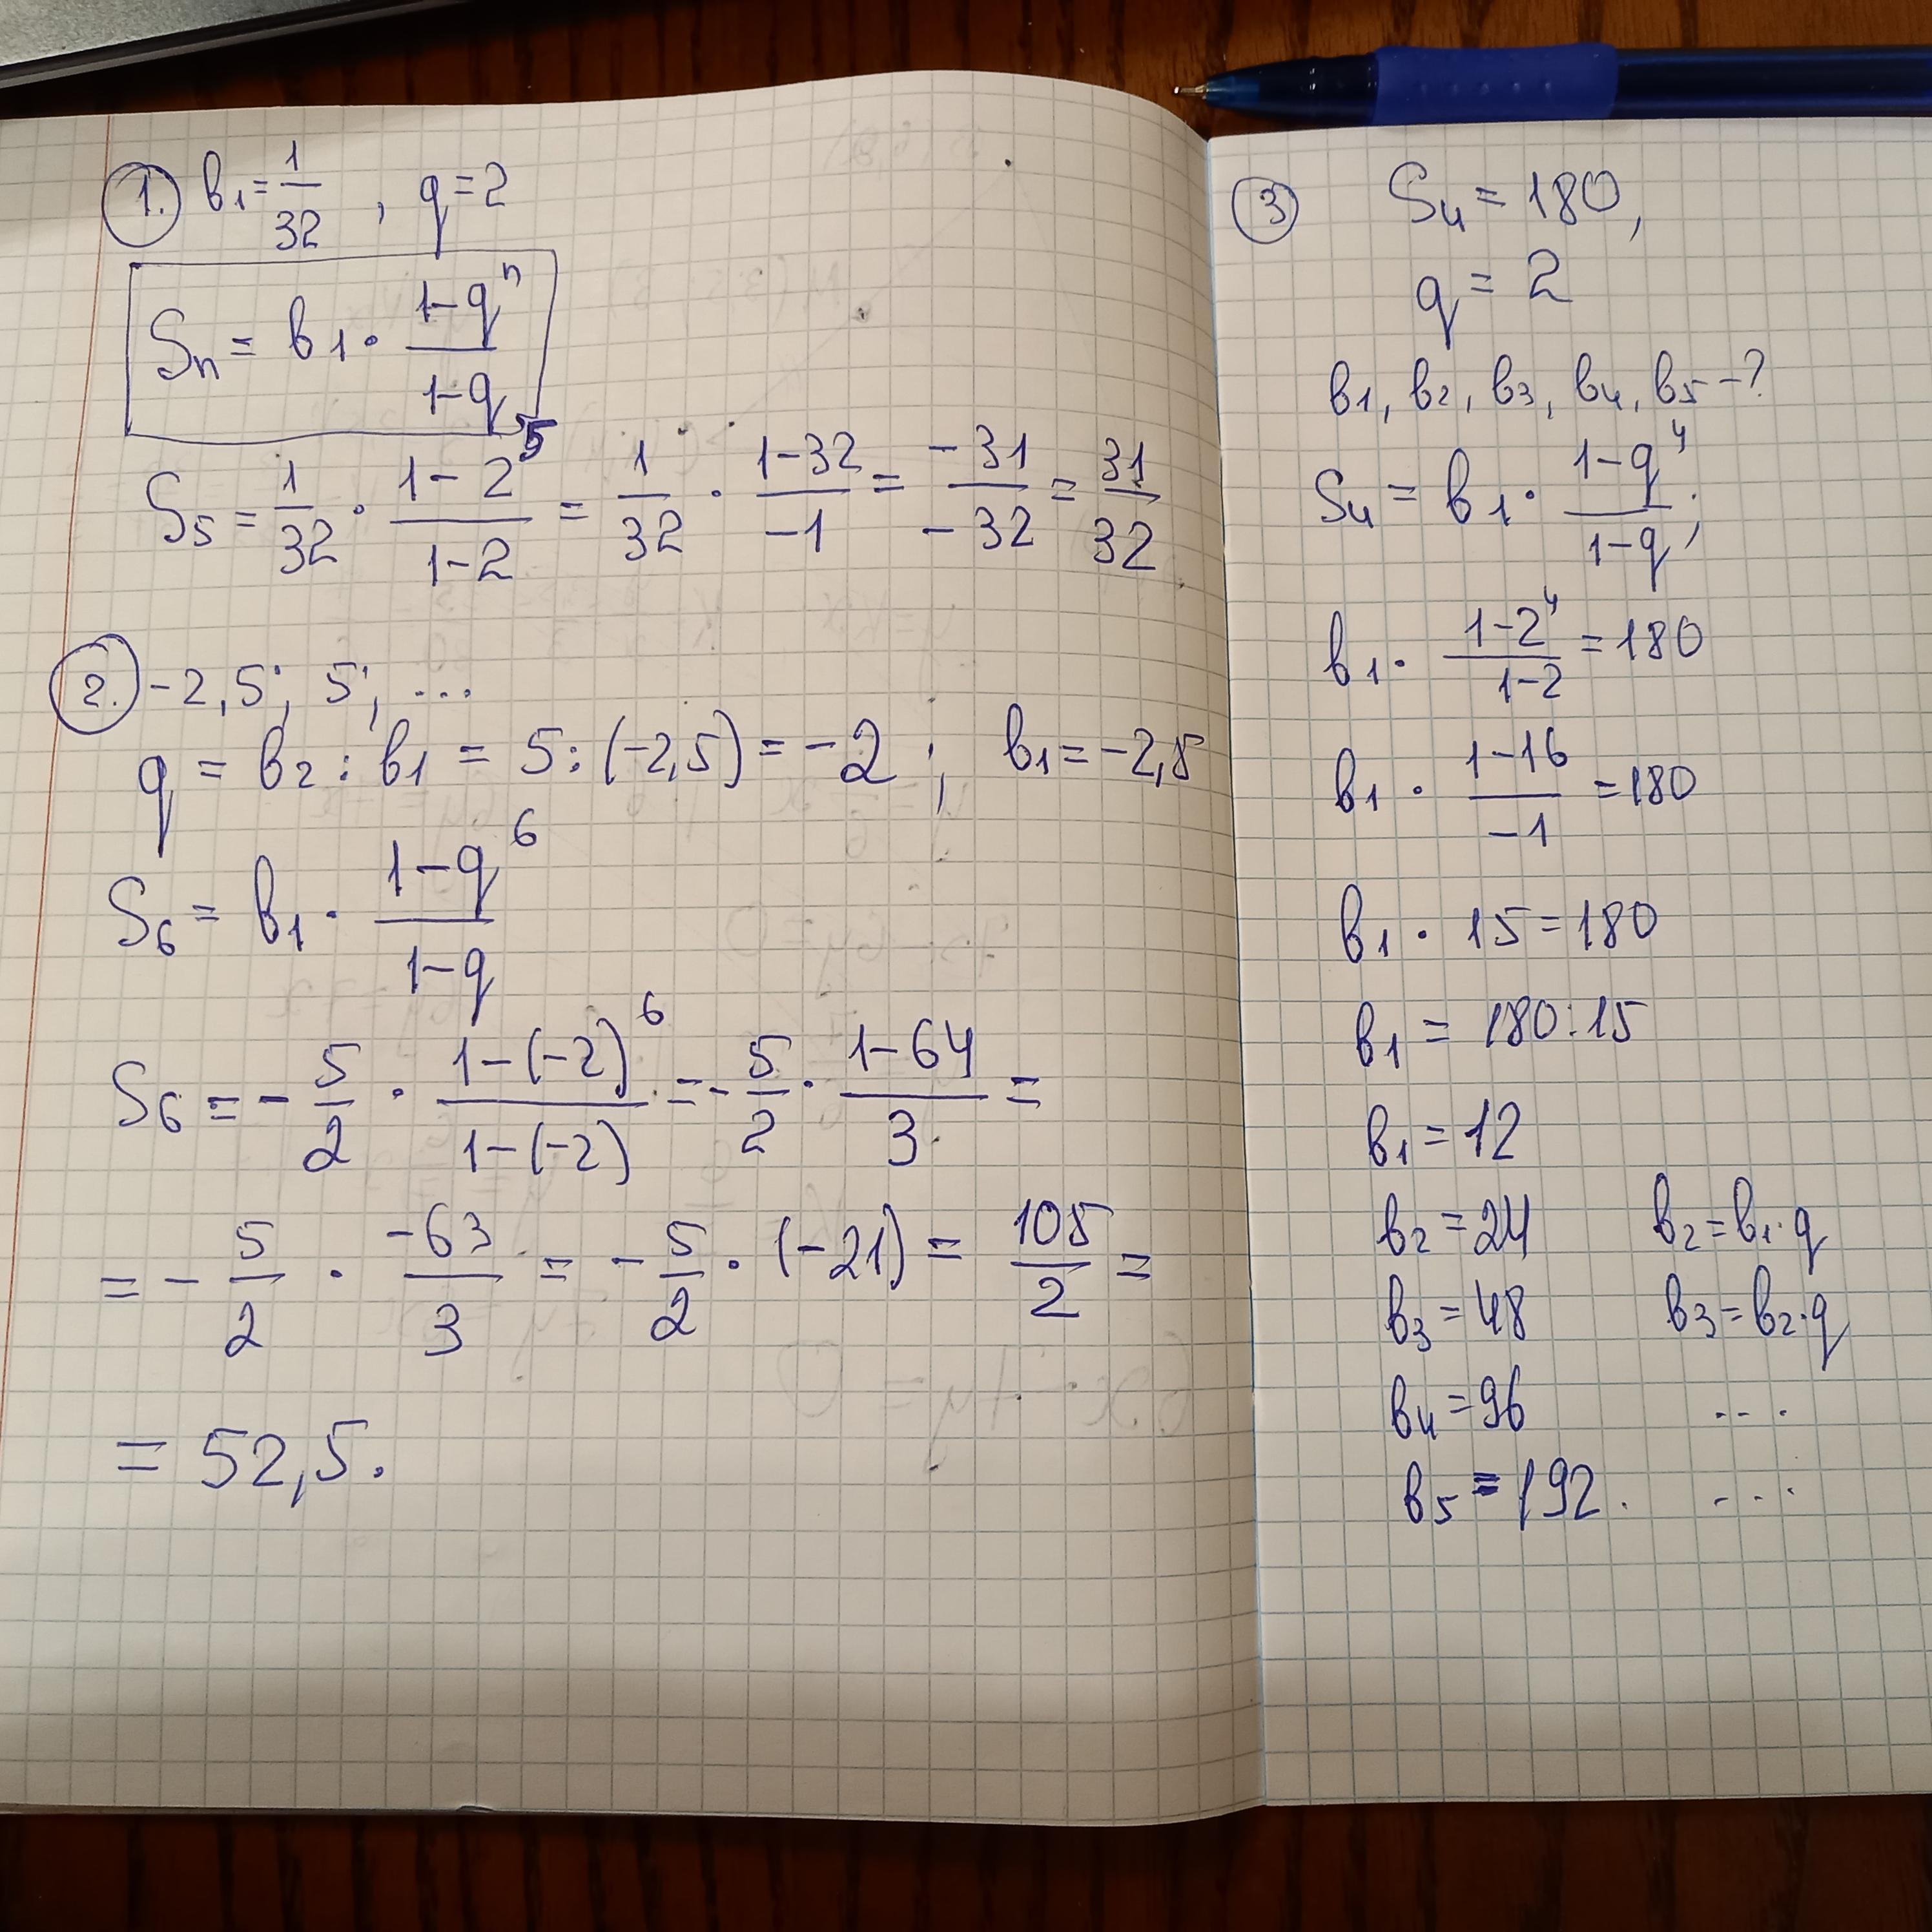 1. b₁ = 1/32, q = 2
Sₙ = b₁ · (1-qⁿ)/(1-q)
S₅ = 1/32 · (1-2⁵)/(1-2) = 1/32 · (1-32)/(-1) = (-31)/(-32) = 31/32
2. -2,5; 5; ...
q = b₂ : b₁ = 5 : (-2,5) = -2; b₁ = -2,5
S₆ = b₁ · (1-q⁶)/(1-q)
S₆ = - 5/2 · (1-(-2)⁶)/(1-(-2)) = - 5/2 · (1-64)/3 =
= - 5/2 · (-63)/3 = - 5/2 · (-21) = 105/2 =
= 52,5.
3 S₄ = 180,
q = 2
b₁, b₂, b₃, b₄, b₅ - ?
S₄ = b₁ · (1-q⁴)/(1-q);
b₁ · (1-2⁴)/(1-2) = 180
b₁ · (1-16)/(-1) = 180
b₁ · 15 = 180
b₁ = 180 : 15
b₁ = 12
b₂ = 24 b₂ = b₁ · q
b₃ = 48 b₃ = b₂ · q
b₄ = 96 ...
b₅ = 192. ...